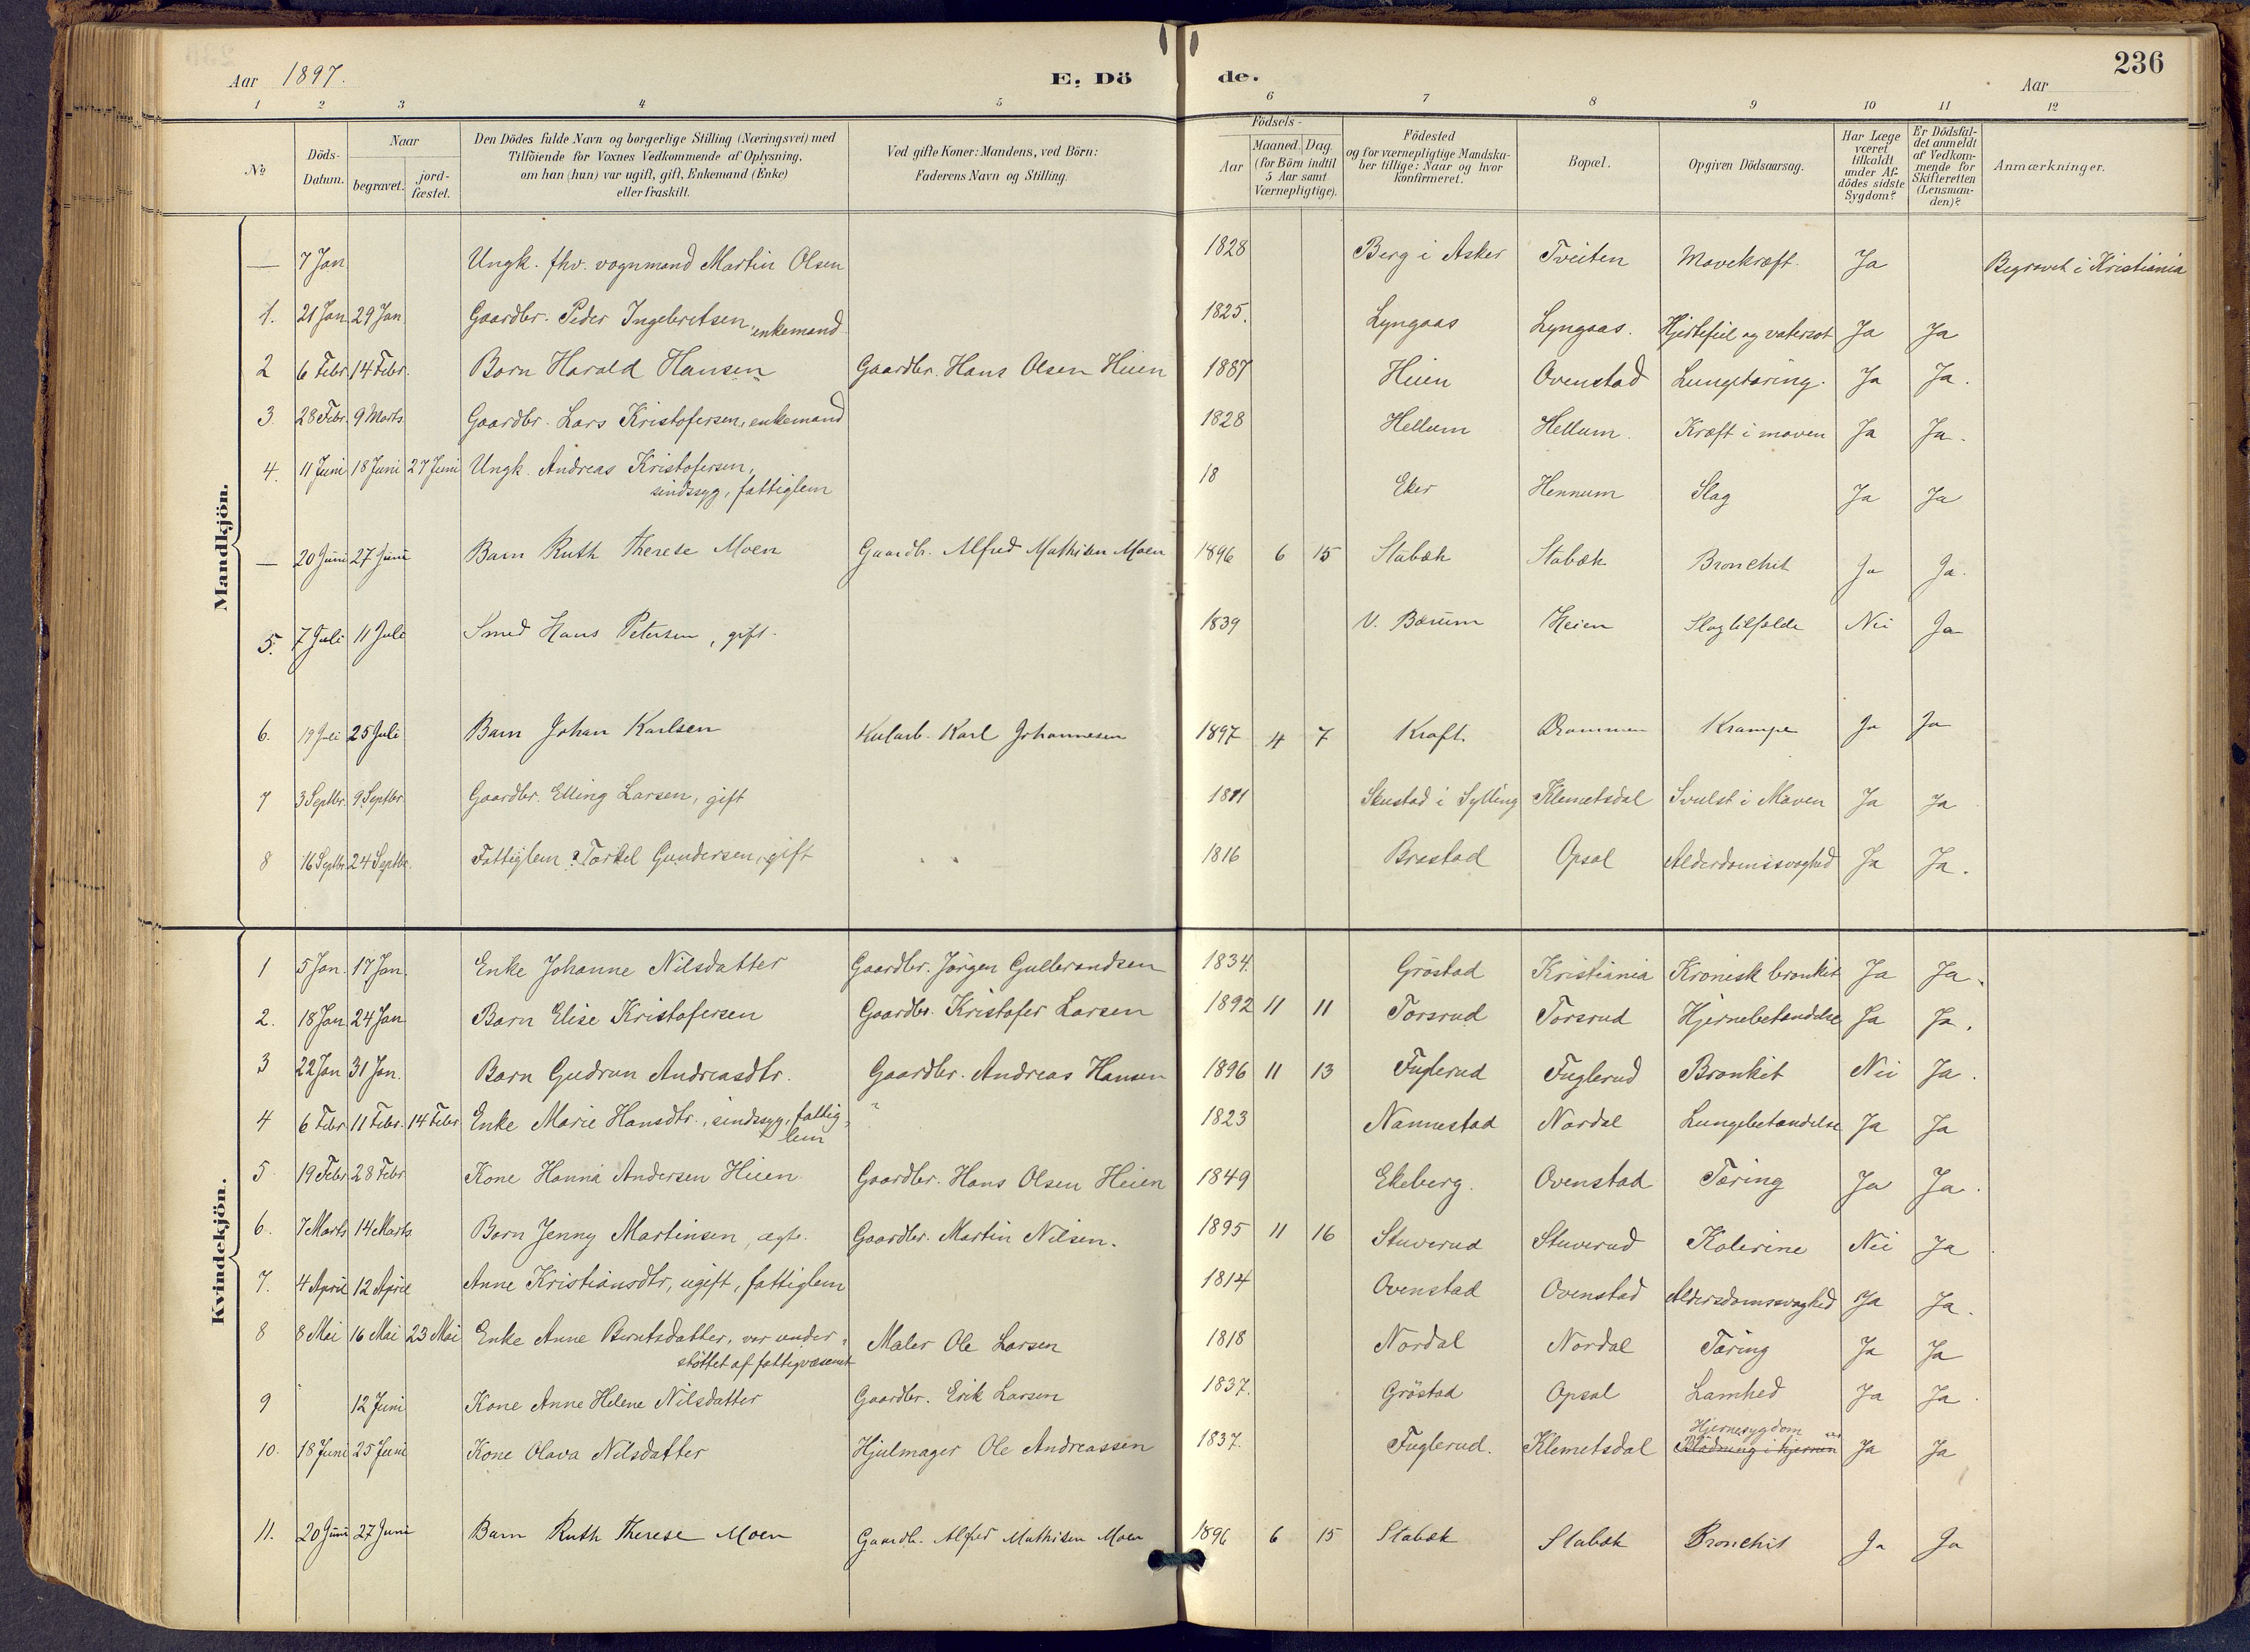 Aar 1897. E. Dö de. Aar 236
1 2 3 4 5 6 7 8 9 10 11 12
№ Döds-Datum. Naar begravet. jordfæstet. Den Dödes fulde Navn og borgerlige Stilling (Næringsvei) med Tilföiende for Voxnes Vedkommende af Oplysning, om han (hun) var ugift, gift, Enkemand (Enke) eller fraskilt. Ved gifte Koner: Mandens, ved Börn: Faderens Navn og Stilling. Födsels- Aar Maaned. Dag. (for Börn indtil 5 Aar samt Værnepligtige). Födested og for værnepligtige Mandskaber tillige: Naar og hvor konfirmeret. Bopæl. Opgiven Dödsaarsag. Har Læge været tilkaldt under Afdödes sidste Sygdom? Er Dödsfaldet anmeldt af Vedkommende for Skifteretten (Lensmanden)? Anmærkninger.
Mandkjön.
— 7 Jan Ungk. fhv. vognmand Martin Olsen 1828 Berg i Asker Tveiten Mavekræft. Ja Begravet i Kristiania
1. 21 Jan. 29 Jan. Gaardbr. Peder Ingebretsen, enkemand 1825. Lyngaas Lyngaas. Hjertefeil og vatersot Ja Ja
2 6 Febr. 14 Febr. Barn Harald Hansen Gaardbr. Hans Olsen Heien 1887 Heien Ovenstad Lungetæring. Ja Ja.
3. 28 Febr. 9 Marts. Gaardbr. Lars Kristofersen, enkemand 1828 Hellum Hellum. Kræft i maven Ja Ja.
4. 11 Juni 18 Juni 27 Juni Ungk. Andreas Kristofersen, sindssyg, fattiglem 18 Eker Hennum Slag Ja Ja
— 20 Juni 27 Juni Barn Ruth Therese Moen Gaardb. Alfred Mathisen Moen 1896 6 15 Stabæk Stabæk Bronchit Ja Ja.
5. 7 Juli 11 Juli Smed Hans Petersen, gift. 1839 V. Bærum Heien Slagtilfælde Nei Ja
6. 19 Juli 25 Juli Barn Johan Karlsen Karl Johannesen 1897 4 7 Kraft. Drammen Krampe Ja Ja
7 3 Septbr. 9 Septbr. Gaardbr. Elling Larsen, gift 1811 Skustad i Sylling Klemetsdal Svulst i Maven Ja Ja
8 16 Septbr. 24 Septbr. Fattiglem Torkel Gundersen, gift 1816 Brastad Opsal Alderdomssvaghed Ja Ja.
Kvindekjön.
1 5 Jan. 17 Jan. Enke Johanne Nilsdatter Gaardbr. Jørgen Gulbrandsen 1834. Gröstad Kristiania Kronisk bronkit Ja Ja.
2. 18 Jan. 24 Jan. Barn Elise Kristofersen Gaardbr. Kristofer Larsen 1892 11 11 Torsrud Torsrud Hjernebetændelse Ja Ja.
3 22 Jan 31 Jan. Barn Gudrun Andreasdtr. Gaardbr. Andreas Hansen 1896 11 13 Fuglerud Fuglerud Bronkit Nei Ja.
4 6 Febr. 11 Febr. 14 Febr. Enke Marie Hansdtr., sindssyg, fattiglem 1823 Nannestad Nordal Lungebetændelse Ja Ja
5 19 Febr. 28 Febr. Kone Hanna Andersen Heien Gaardbr. Hans Olsen Heien 1849 Ekeberg. Ovenstad Tæring Ja Ja.
6. 7 Marts 14 Marts. Barn Jenny Martinsen, ægte. Gaardbr. Martin Nilsen. 1895 11 16 Stuverud Stuverud Kolerine Nei Ja.
7. 4 April 12 April Anne Kristiansdtr, ugift, fattiglem 1814 Ovenstad Ovenstad Aldersdomssvaghed Ja Ja.
8 8 Mai 16 Mai 23 Mai Enke Anne Berntsdatter, var understöttet af fattigvæsenet Maler Ole Larsen 1818 Nordal Nordal Tæring Ja Ja
9 12 Juni Kone Anne Helene Nilsdatter Gaardbr. Erik Larsen 1837. Gröstad Opsal Lamhed Ja Ja.
10. 18 Juni 25 Juni Kone Olava Nilsdatter Hjulmager Ole Andreassen 1837. Fuglerud. Klemetsdal Hjernesygdom Blödning i hjernen Ja Ja
11. 20 Juni 27 Juni Barn Ruth Therese Moen Gaardb. Alfred Mathisen Moen 1896 6 15 Stabæk Stabæk Bronchit Ja Ja